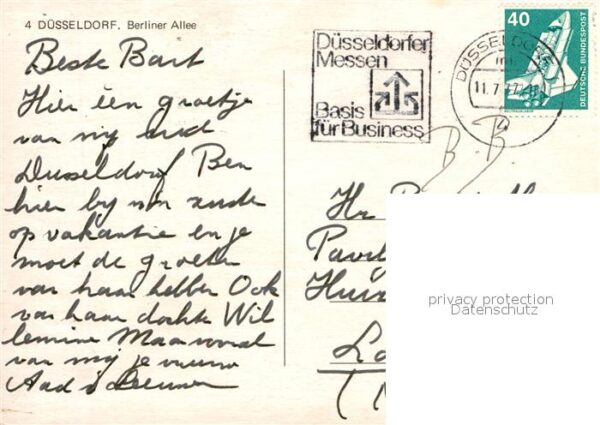 4 DÜSSELDORF, Berliner Allee
Beste Bart
Hier één groetje
van my uud
Dusseldorf Ben
hier by m'n zuste
op vakantie en je
moet de groeten
van haar hebben Ook
van haar dochte Wil
lemine Maar vooral
van mij je
Aad
Düsseldorfer
Messen
Basis
für Business
DÜSSELDORF
11.7.77
40
DEUTSCHE BUNDESPOST
Hr
Pavil
Huiz
privacy protection
Datenschutz